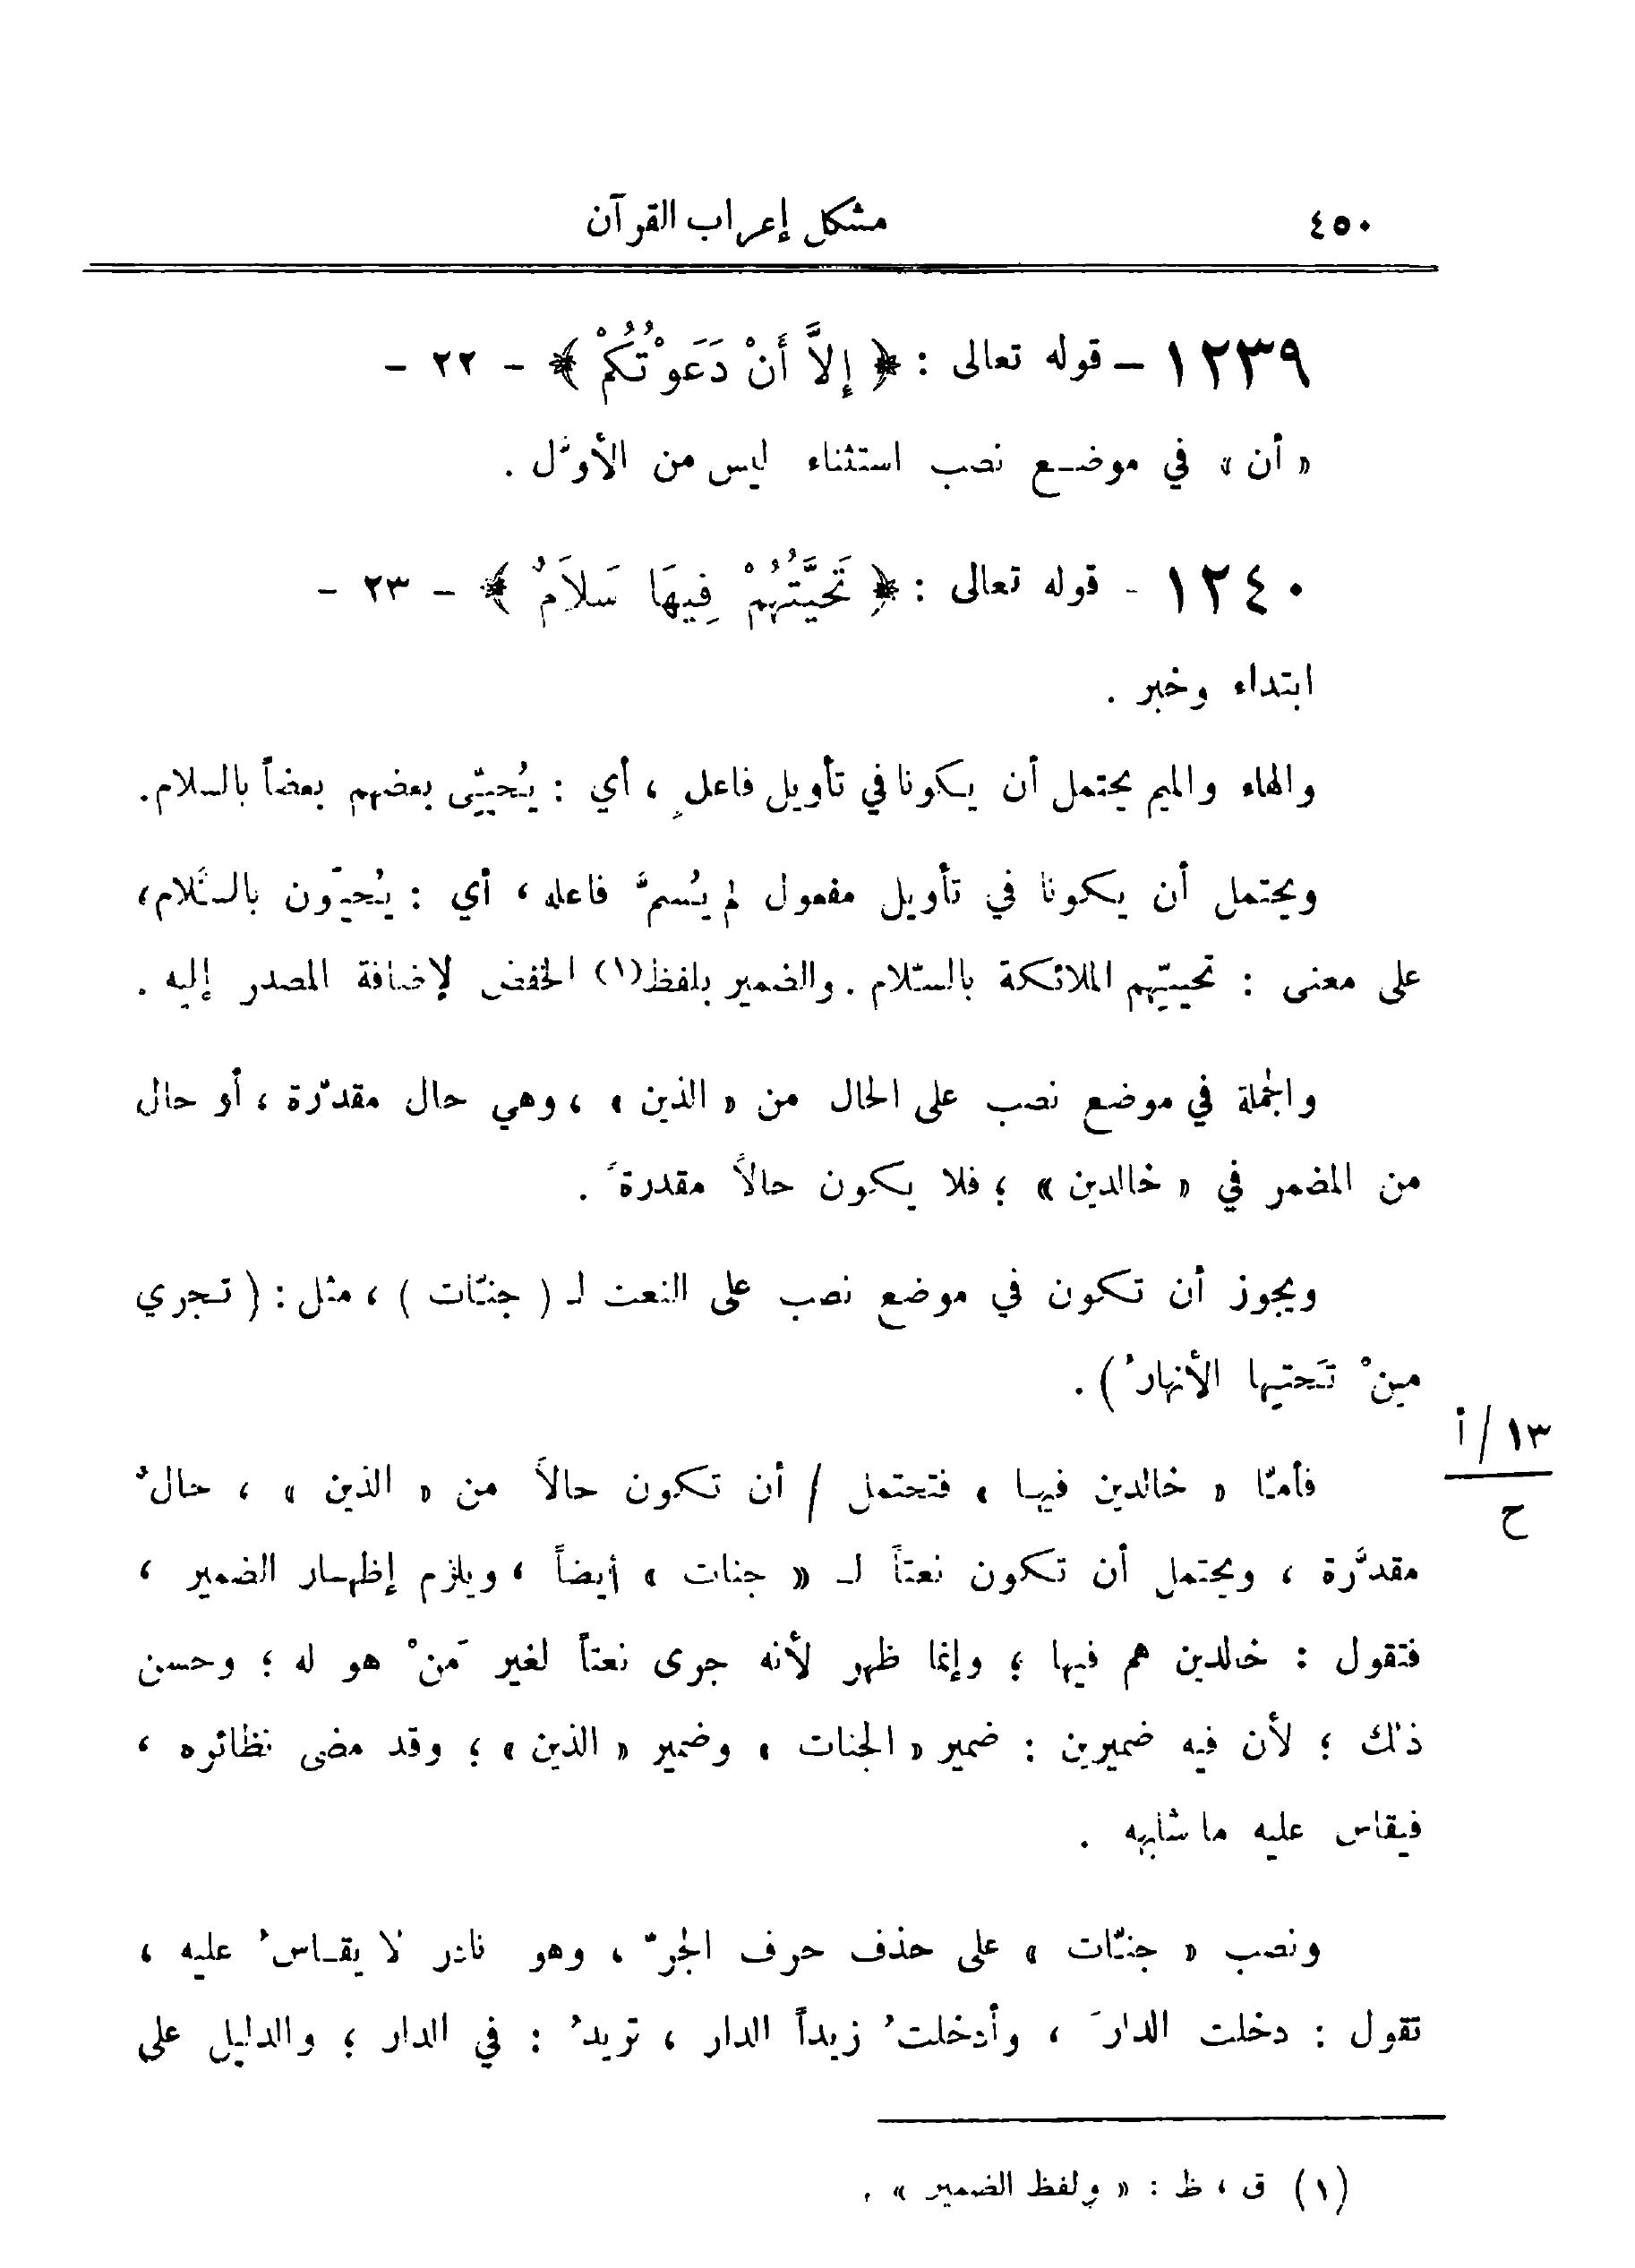 ٤٥٠ مشكل إعراب القرآن
١٢٣٩ – قوله تعالى : ﴿ إِلاَّ أَنْ دَعَوْتُكُمْ ﴾ - ٢٢ -
« أن » في موضع نصب استثناء ليس من الأوّل .
١٢٤٠ - قوله تعالى : ﴿ تَحِيَّتُهُمْ فِيهَا سَلاَمٌ ﴾ - ٢٣ -
ابتداء وخبر .
والهاء والميم يحتمل أن يكونا في تأويل فاعلٍ ، أي : يُحيّي بعضهم بعضاً بالسلام.
ويحتمل أن يكونا في تأويل مفعول لم يُسمَّ فاعله ، أي : يُحيّون بالسّلام،
على معنى : تحييّهم الملائكة بالسّلام . والضمير بلفظ(١) الخفض لإضافة المصدر إليه .
والجملة في موضع نصب على الحال من « الذين » ، وهي حال مقدّرة ، أو حال
من المضمر في « خالدين » ؛ فلا يكون حالاً مقدرةً .
ويجوز أن تكون في موضع نصب على النعت لـ ( جنّات ) ، مثل : ( تجري
مِنْ تَحتِها الأنهارُ ) .
١٣/أ
ح
فأمّا « خالدين فيها » فتحتمل / أن تكون حالاً من « الذين » ، حالٌ
مقدَّرة ، ويحتمل أن تكون نعتاً لـ « جنات » أيضاً ، ويلزم إظهار الضمير ،
فتقول : خالدين هم فيها ؛ وإنما ظهر لأنه جرى نعتاً لغير مَنْ هو له ؛ وحسن
ذلك ؛ لأن فيه ضميرين : ضمير « الجنات » وضمير « الذين » ؛ وقد مضى نظائره ،
فيقاس عليه ما شابهه .
ونصب « جنّات » على حذف حرف الجرّ ، وهو نادر لا يقاسُ عليه ،
تقول : دخلت الدارَ ، وأدخلتُ زيداً الدار ، تريدُ : في الدار ؛ والدليل على
(١) ق ، ظ : « ولفظ الضمير » .